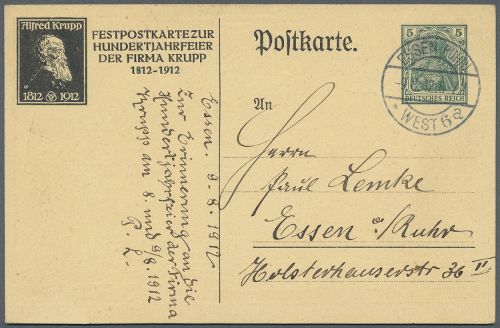 Alfred Krupp
1812 1912
FESTPOSTKARTE ZUR
HUNDERTJAHRFEIER
DER FIRMA KRUPP
1812-1912
Postkarte.
5 5
DEUTSCHES REICH
ESSEN (RUHR)
* WEST 6a
An
Herrn
Paul Lemke
Essen a/Ruhr
Holsterhauserstr 36 II
Essen. 9-8.1912
Zur Erinnerung an die
Hundertjahrfeier der Firma
Krupp am 8. und 9/8. 1912
P L-